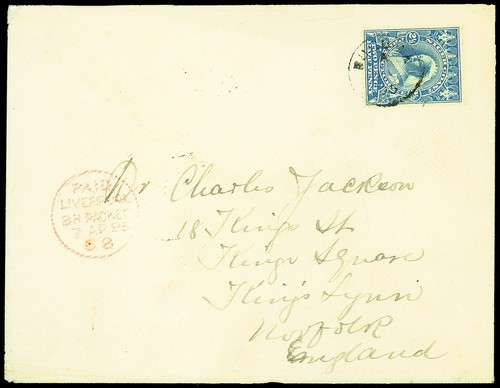 PAID
LIVERPOOL
BR PACKET
7 AP 98
8 8
Dr Charles Jackson
18 Kings St
Kings Square
King's Lynn
Norfolk
England